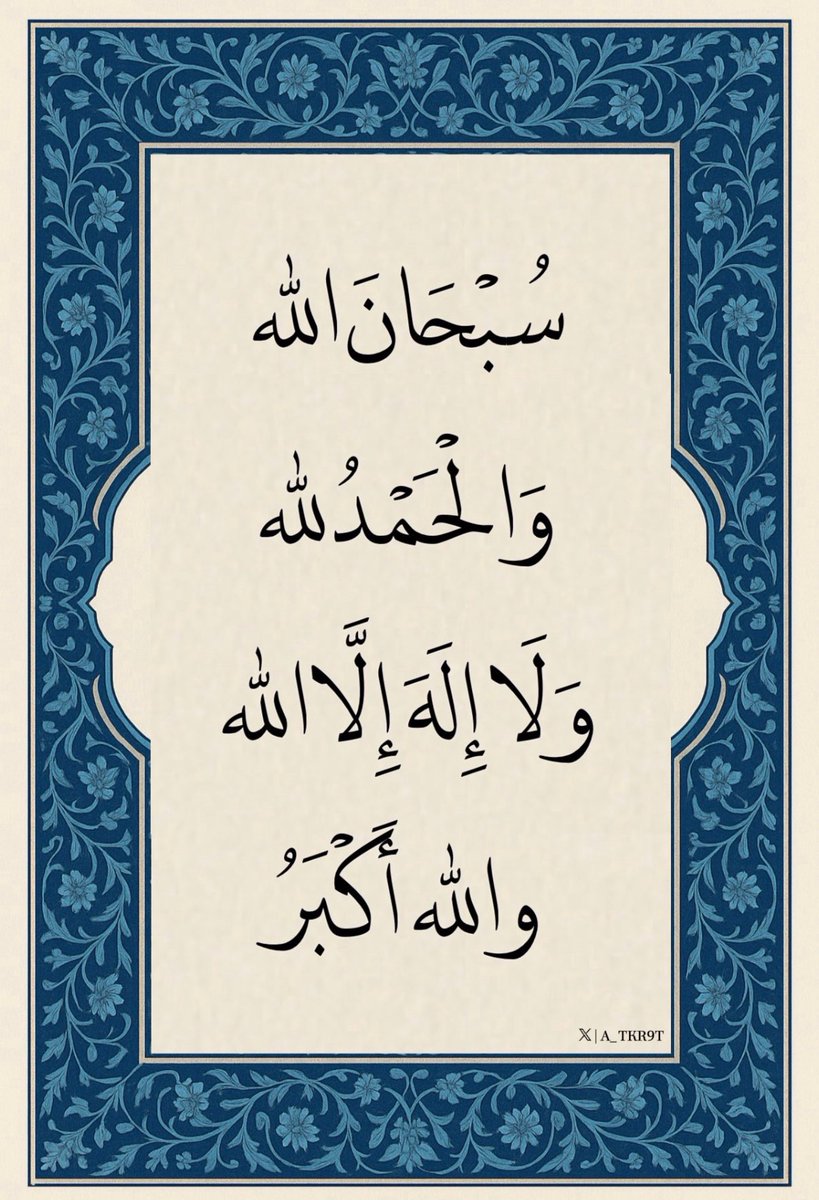 سُبْحَانَ الله
وَالْحَمْدُ لله
وَلَا إِلَهَ إِلَّا الله
والله أَكْبَرُ
𝕏 | A_TKR9T